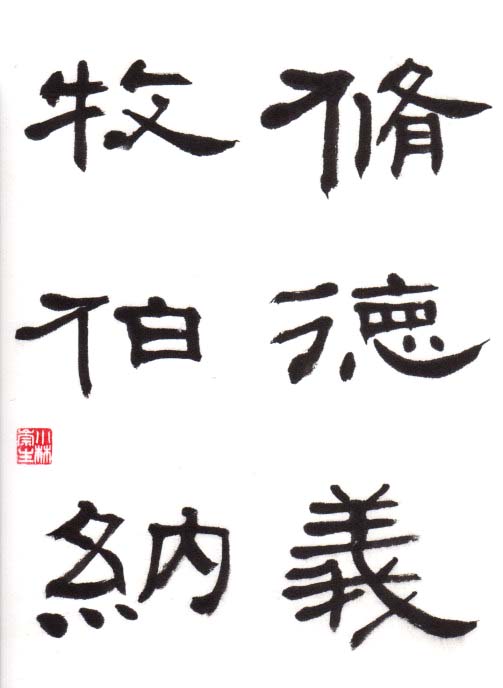 脩德義
牧伯納
小林
衛生